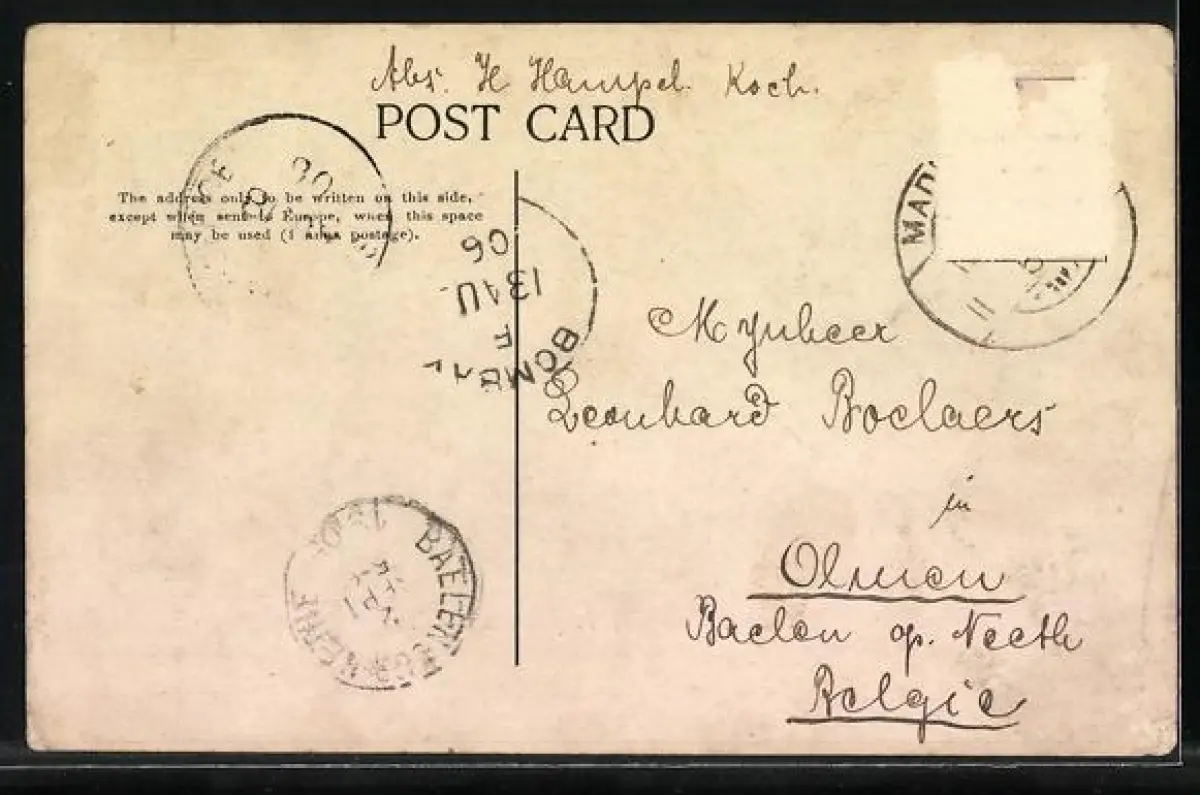 Abs. H Hampel. Koch.
POST CARD
The address only to be written on this side,
except when sent to Europe, when this space
may be used (1 anna postage).
BOMBAY
F
13 AU
06
MAD
Mynheer
Leonhard Boelaers
in
Olmen
Baelen op. Neeth
Belgie
BAELEN